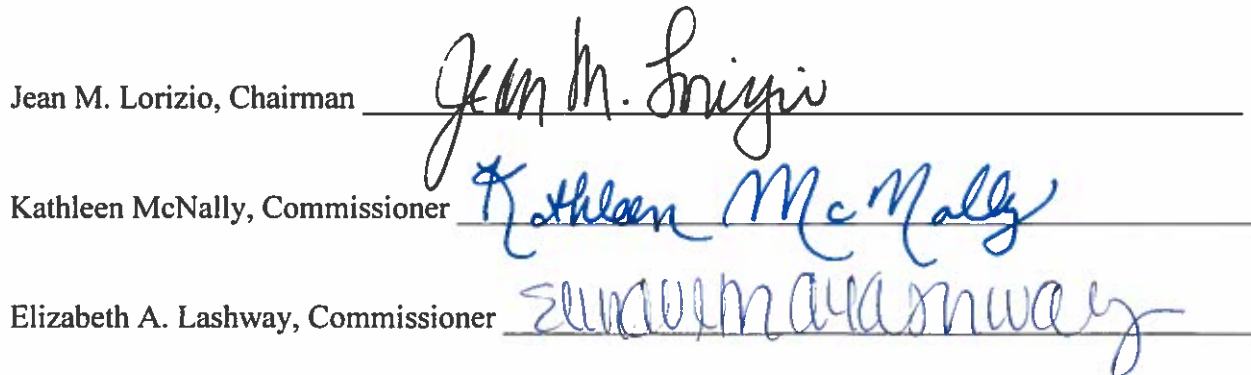 Jean M. Lorizio, Chairman Jean M. Lorizio
Kathleen McNally, Commissioner Kathleen McNally
Elizabeth A. Lashway, Commissioner Elizabeth A Lashway